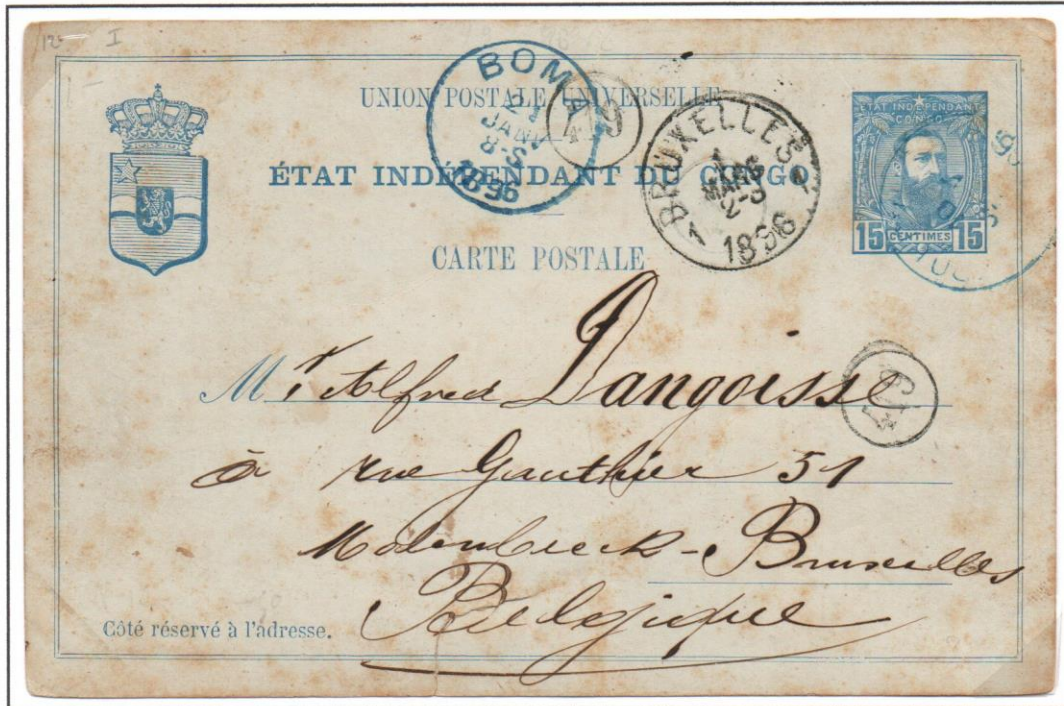 12- I
BOMA
21
JANV
8-S
1896
UNION POSTALE UNIVERSELLE
ÉTAT INDÉPENDANT DU CONGO
CARTE POSTALE
BRUXELLES 1
1
MARS
2-S
1896
ÉTAT INDÉPENDANT DU
CONGO
15 CENTIMES 15
Mr Alfred Dangoisse
à rue Gauthier 51
Molenbeeck-Bruxelles
Belgique
Côté réservé à l'adresse.